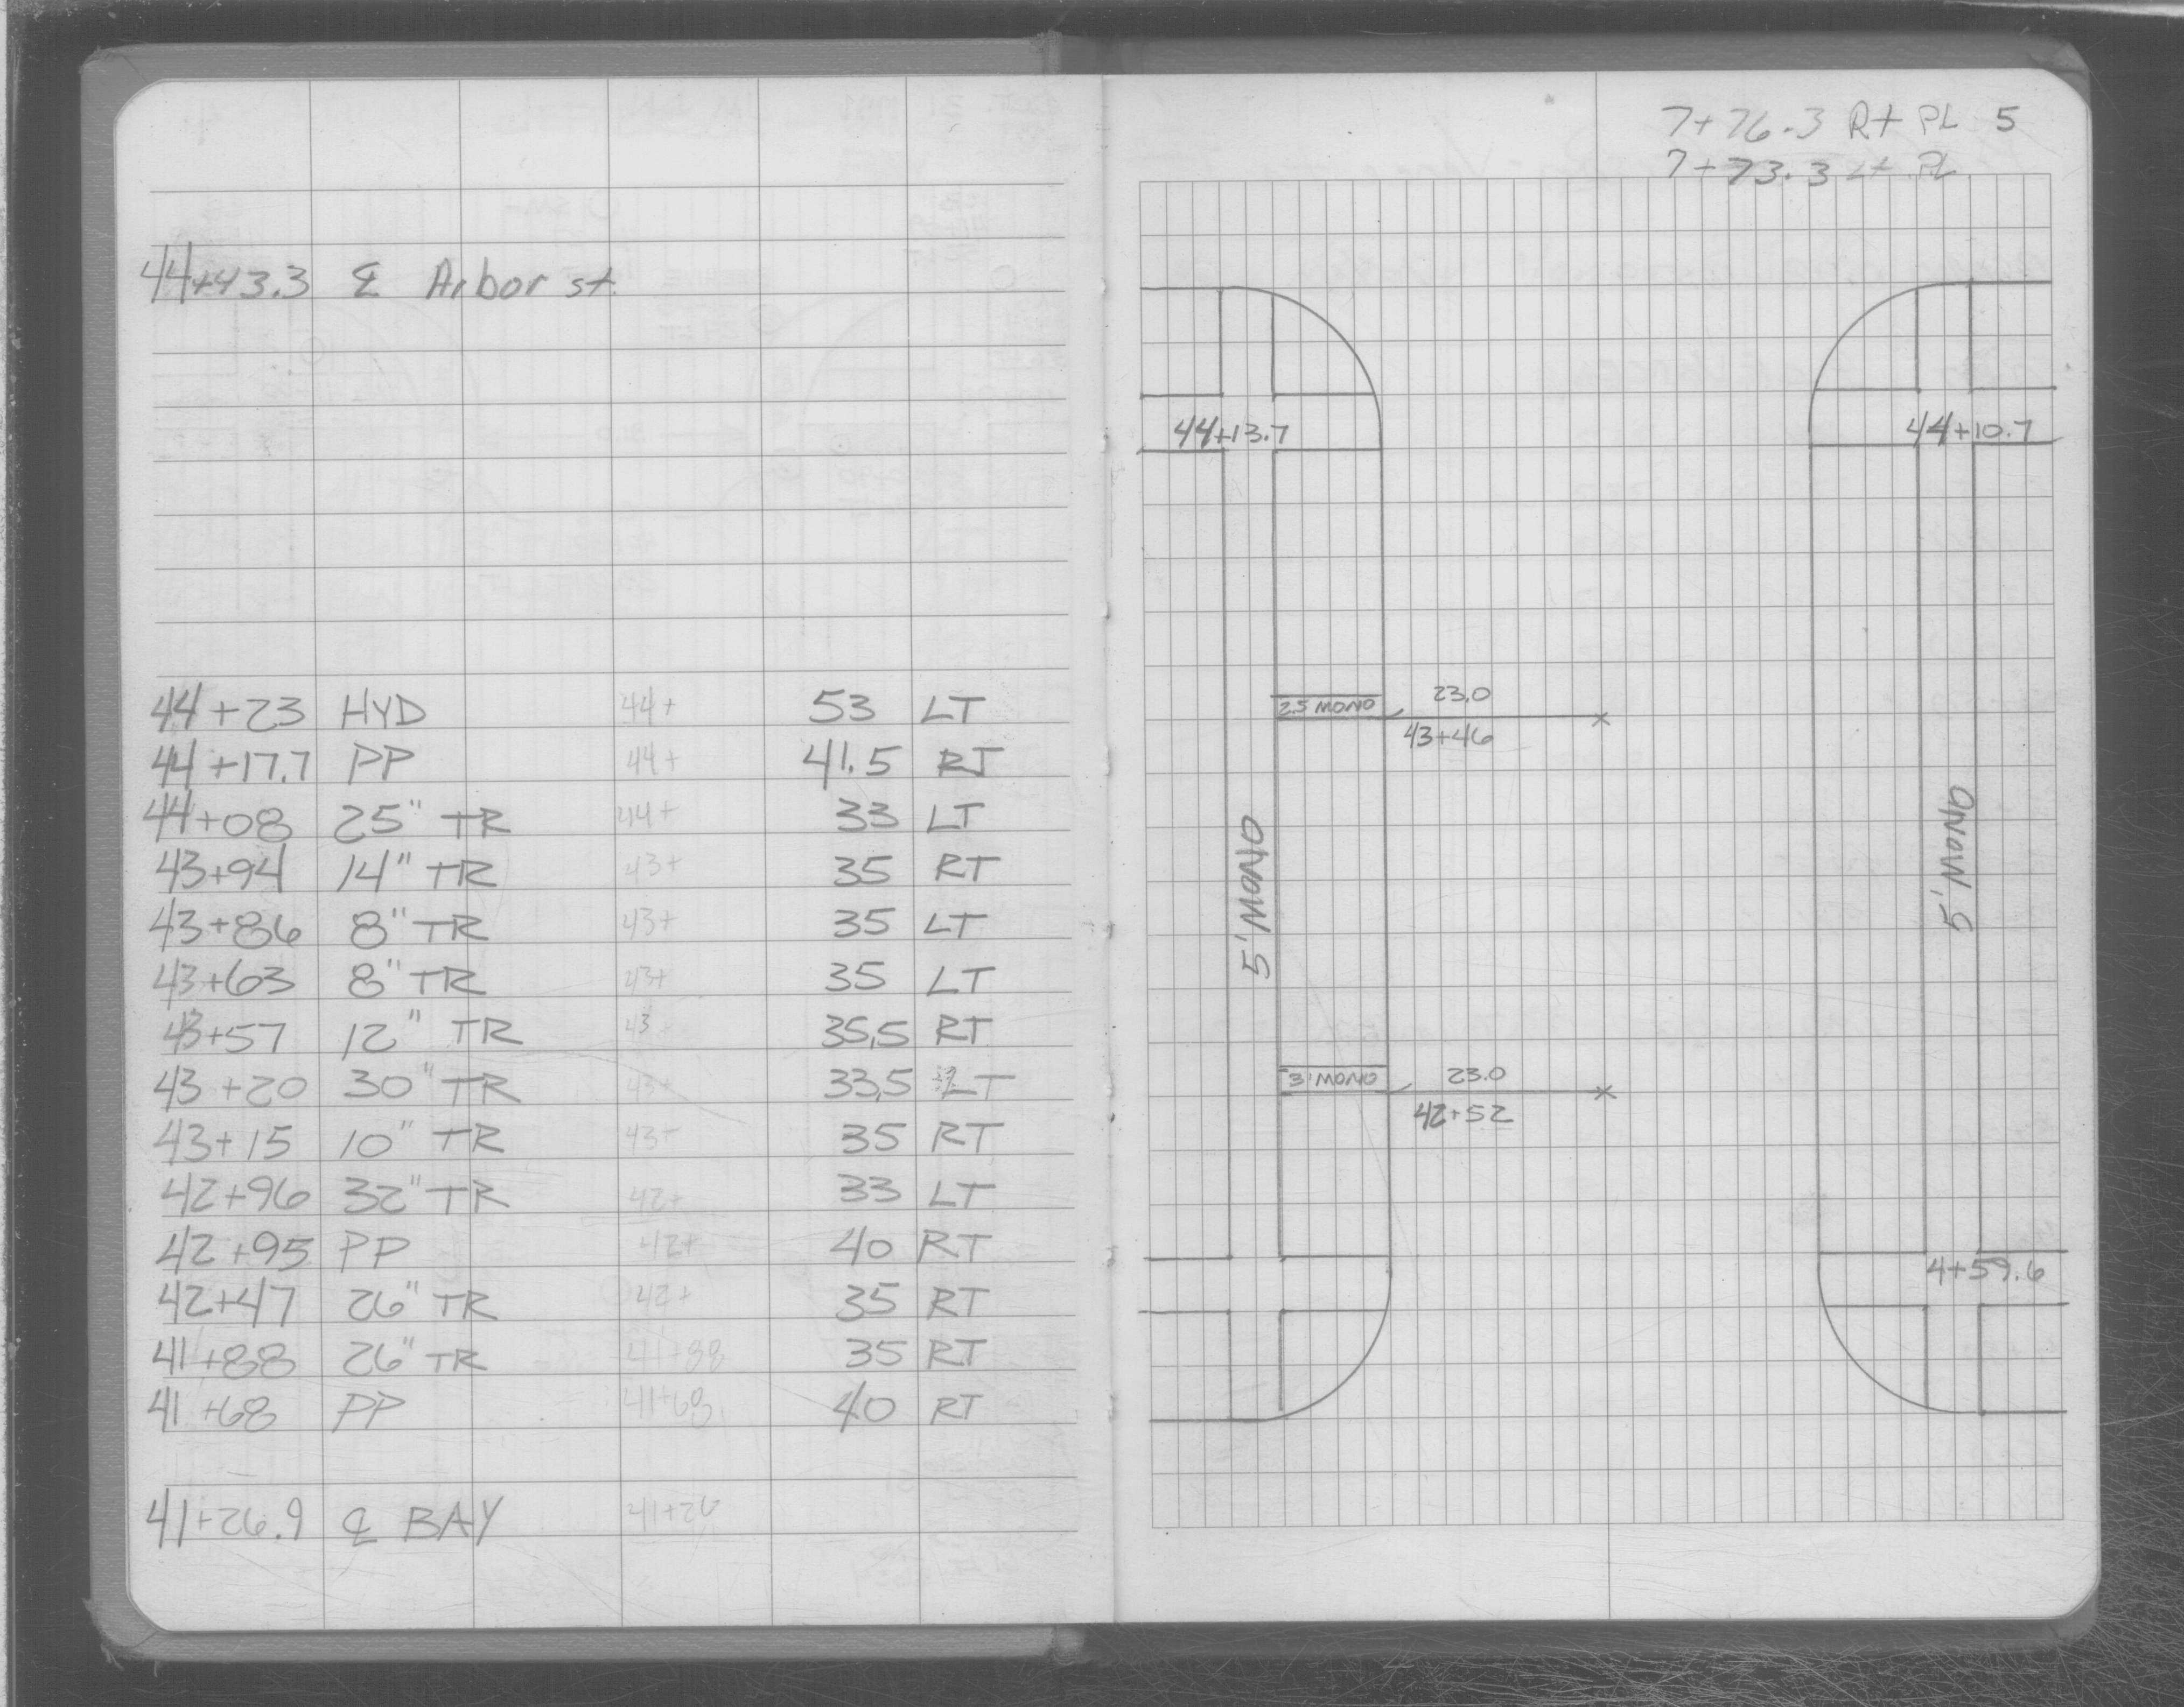 44+43.3 ℄ Arbor st.
44+23 HYD 44+ 53 LT
44+17.7 PP 44+ 41.5 RT
44+08 25" TR 44+ 33 LT
43+94 14" TR 43+ 35 RT
43+86 8" TR 43+ 35 LT
43+63 8" TR 43+ 35 LT
43+57 12" TR 43 35,5 RT
43+20 30" TR 43+ 33,5 LT
43+15 10" TR 43+ 35 RT
42+96 32" TR 42+ 33 LT
42+95 PP 42+ 40 RT
42+47 26" TR 42+ 35 RT
41+88 26" TR 41+88 35 RT
41+68 PP 41+68 40 RT
41+26.9 ℄ BAY 41+26
7+76.3 Rt PL 5
7+73.3 Lt PL
44+13.7 44+10.7
2.5 MONO 23.0
43+46
5' MONO 5' MONO
3' MONO 23.0
42+52
4+59.6